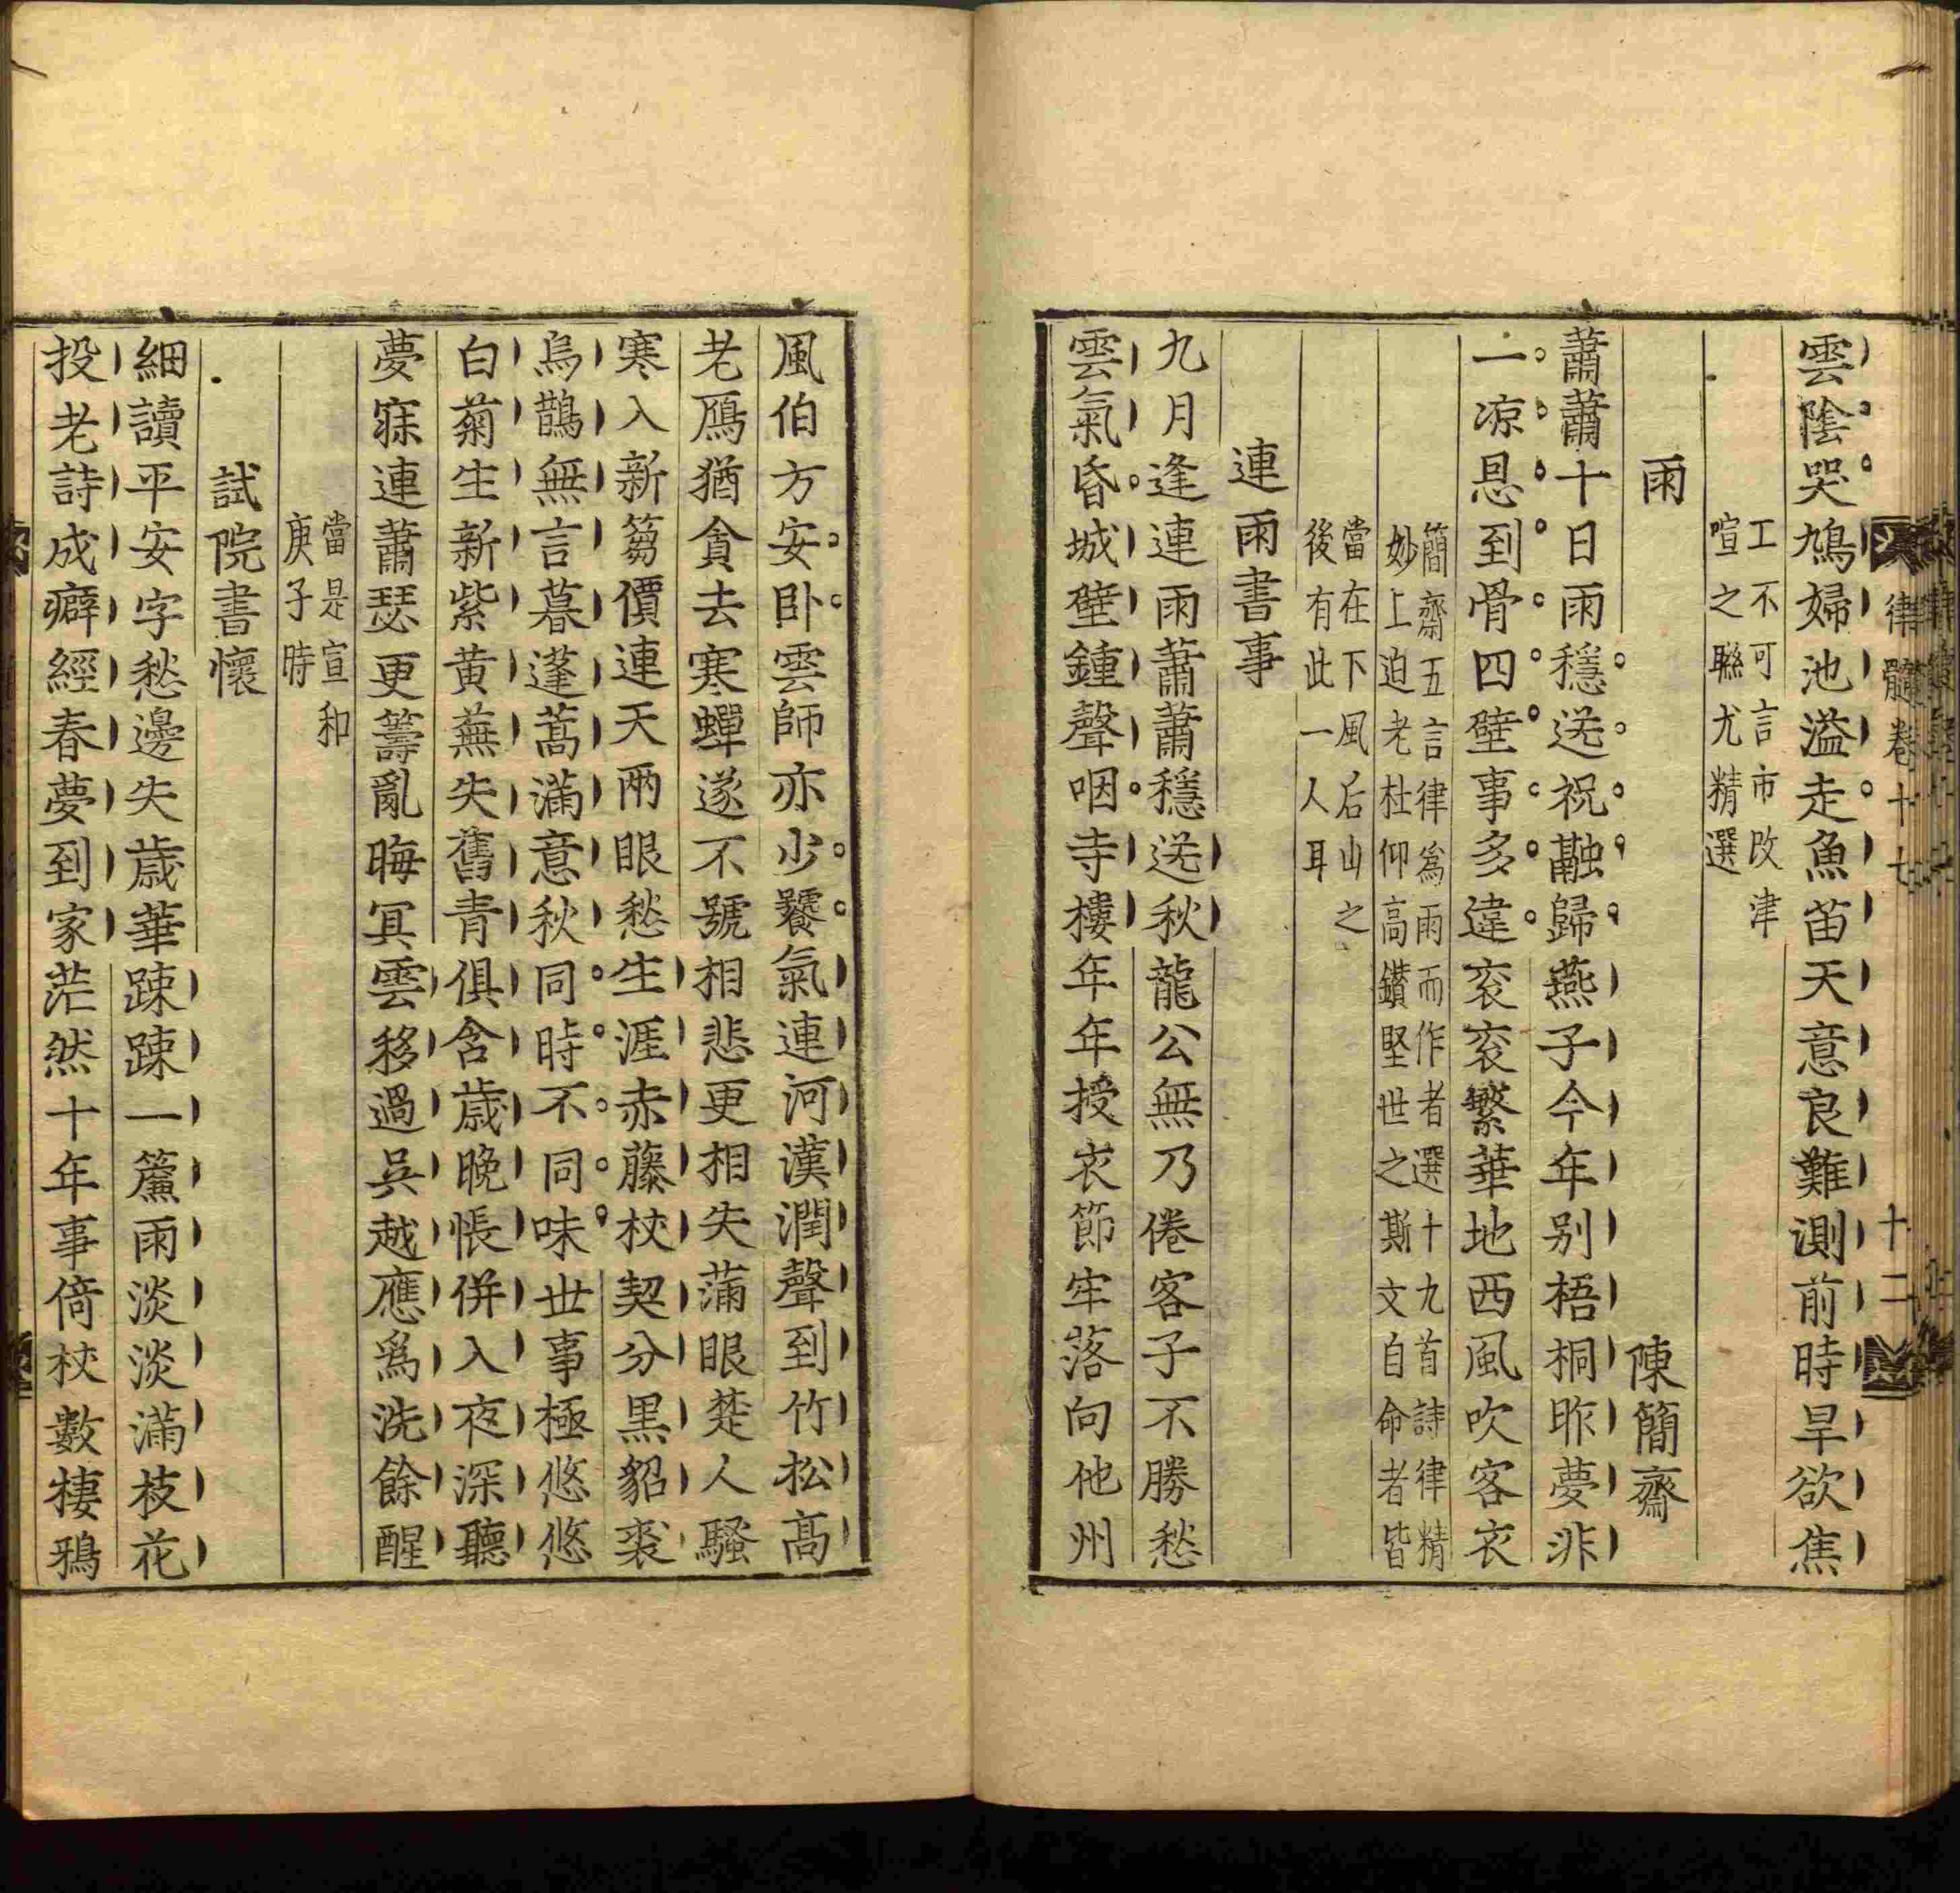 雲陰哭鳩婦池溢走魚苗天意良難測前時旱欲焦
工不可言市改津
喧之聮尤精選
雨
陳簡齋
蕭蕭十日雨穩送祝融歸燕子今年別梧桐昨夢非
一凉恩到骨四壁事多違衮衮繁華地西風吹客衣
簡齋五言律爲雨而作者選十九首詩律精
妙上迫老杜仰高鑚堅世之斯文自命者皆
當在下風后山之
後有此一人耳
連雨書事
九月逢連雨蕭蕭穩送秋龍公無乃倦客子不勝愁
雲氣昏城壁鍾聲咽寺樓年年授衣節牢落向他州
律髓卷十七
十二
風伯方安卧雲師亦少饕氣連河漢潤聲到竹松髙
老鴈猶貪去寒蟬遂不號相悲更相失滿眼楚人騷
寒入新蒭價連天兩眼愁生涯赤藤杖契分黒貂裘
烏鵲無言暮蓬蒿滿意秋同時不同味世事極悠悠
白菊生新紫黄蕪失舊青俱含歳晚悵併入夜深聽
夢寐連蕭瑟更籌亂晦冥雲移過吳越應爲洗餘醒
當是宣和
庚子時
試院書懷
細讀平安字愁邊失歳華踈踈一簾雨淡淡滿枝花
投老詩成癖經春夢到家茫然十年事倚杖數棲鴉